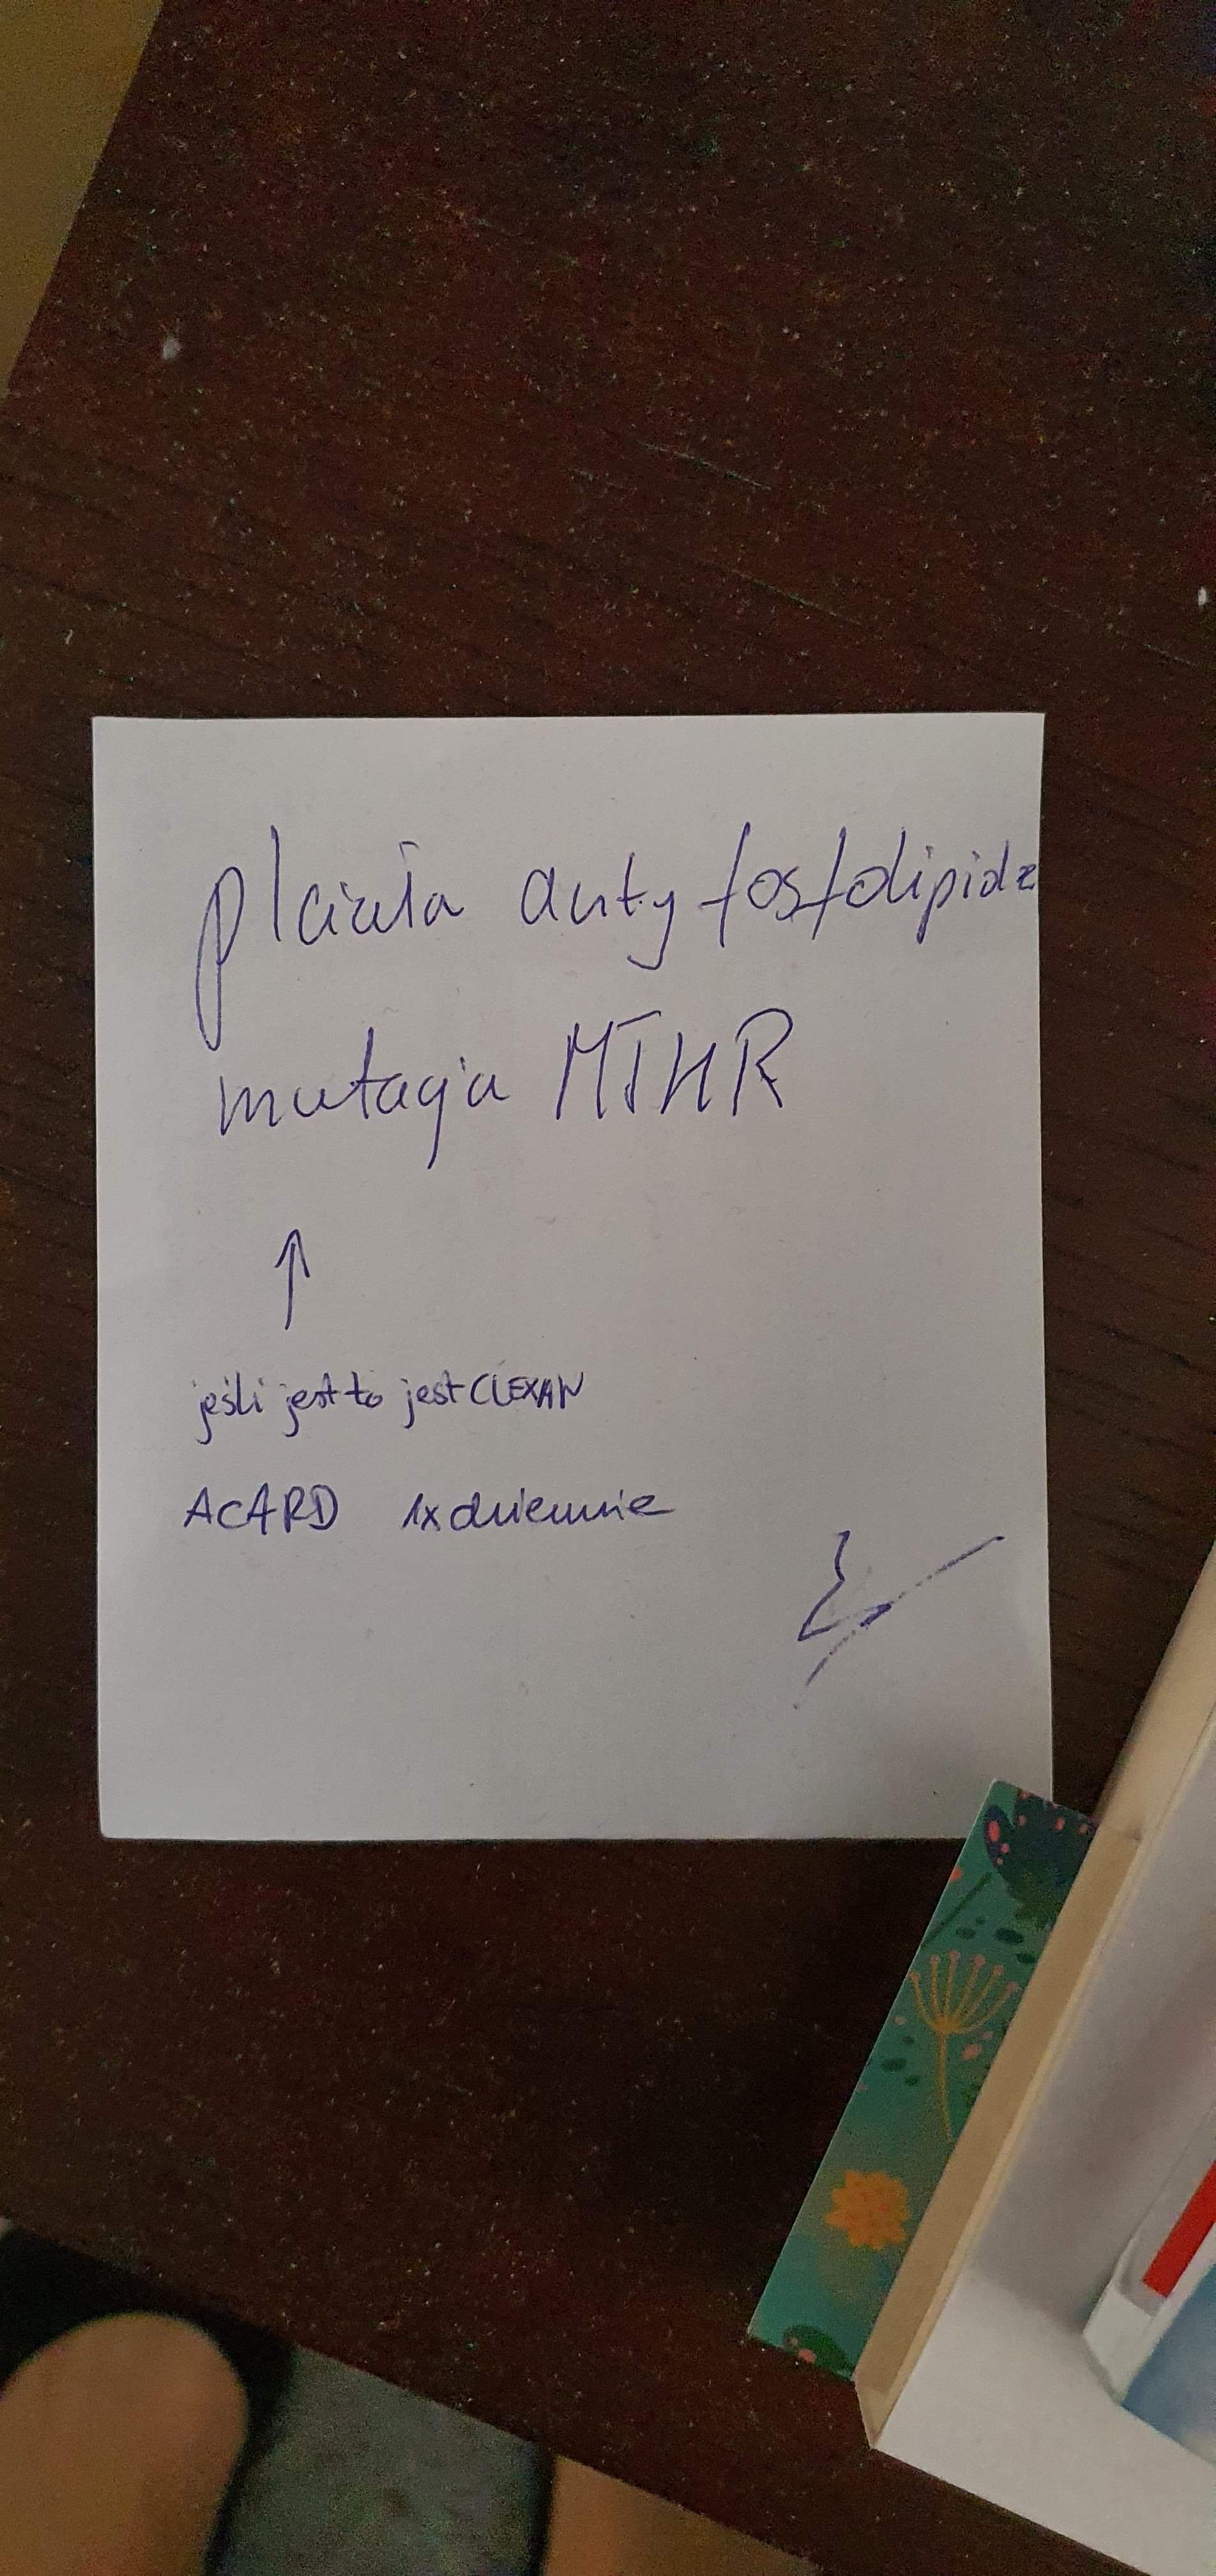 p/ciała antyfosfolipidz
mutacja MTHR
↑
jeśli jest to jest CLEXAN
ACARD 1x dziennie